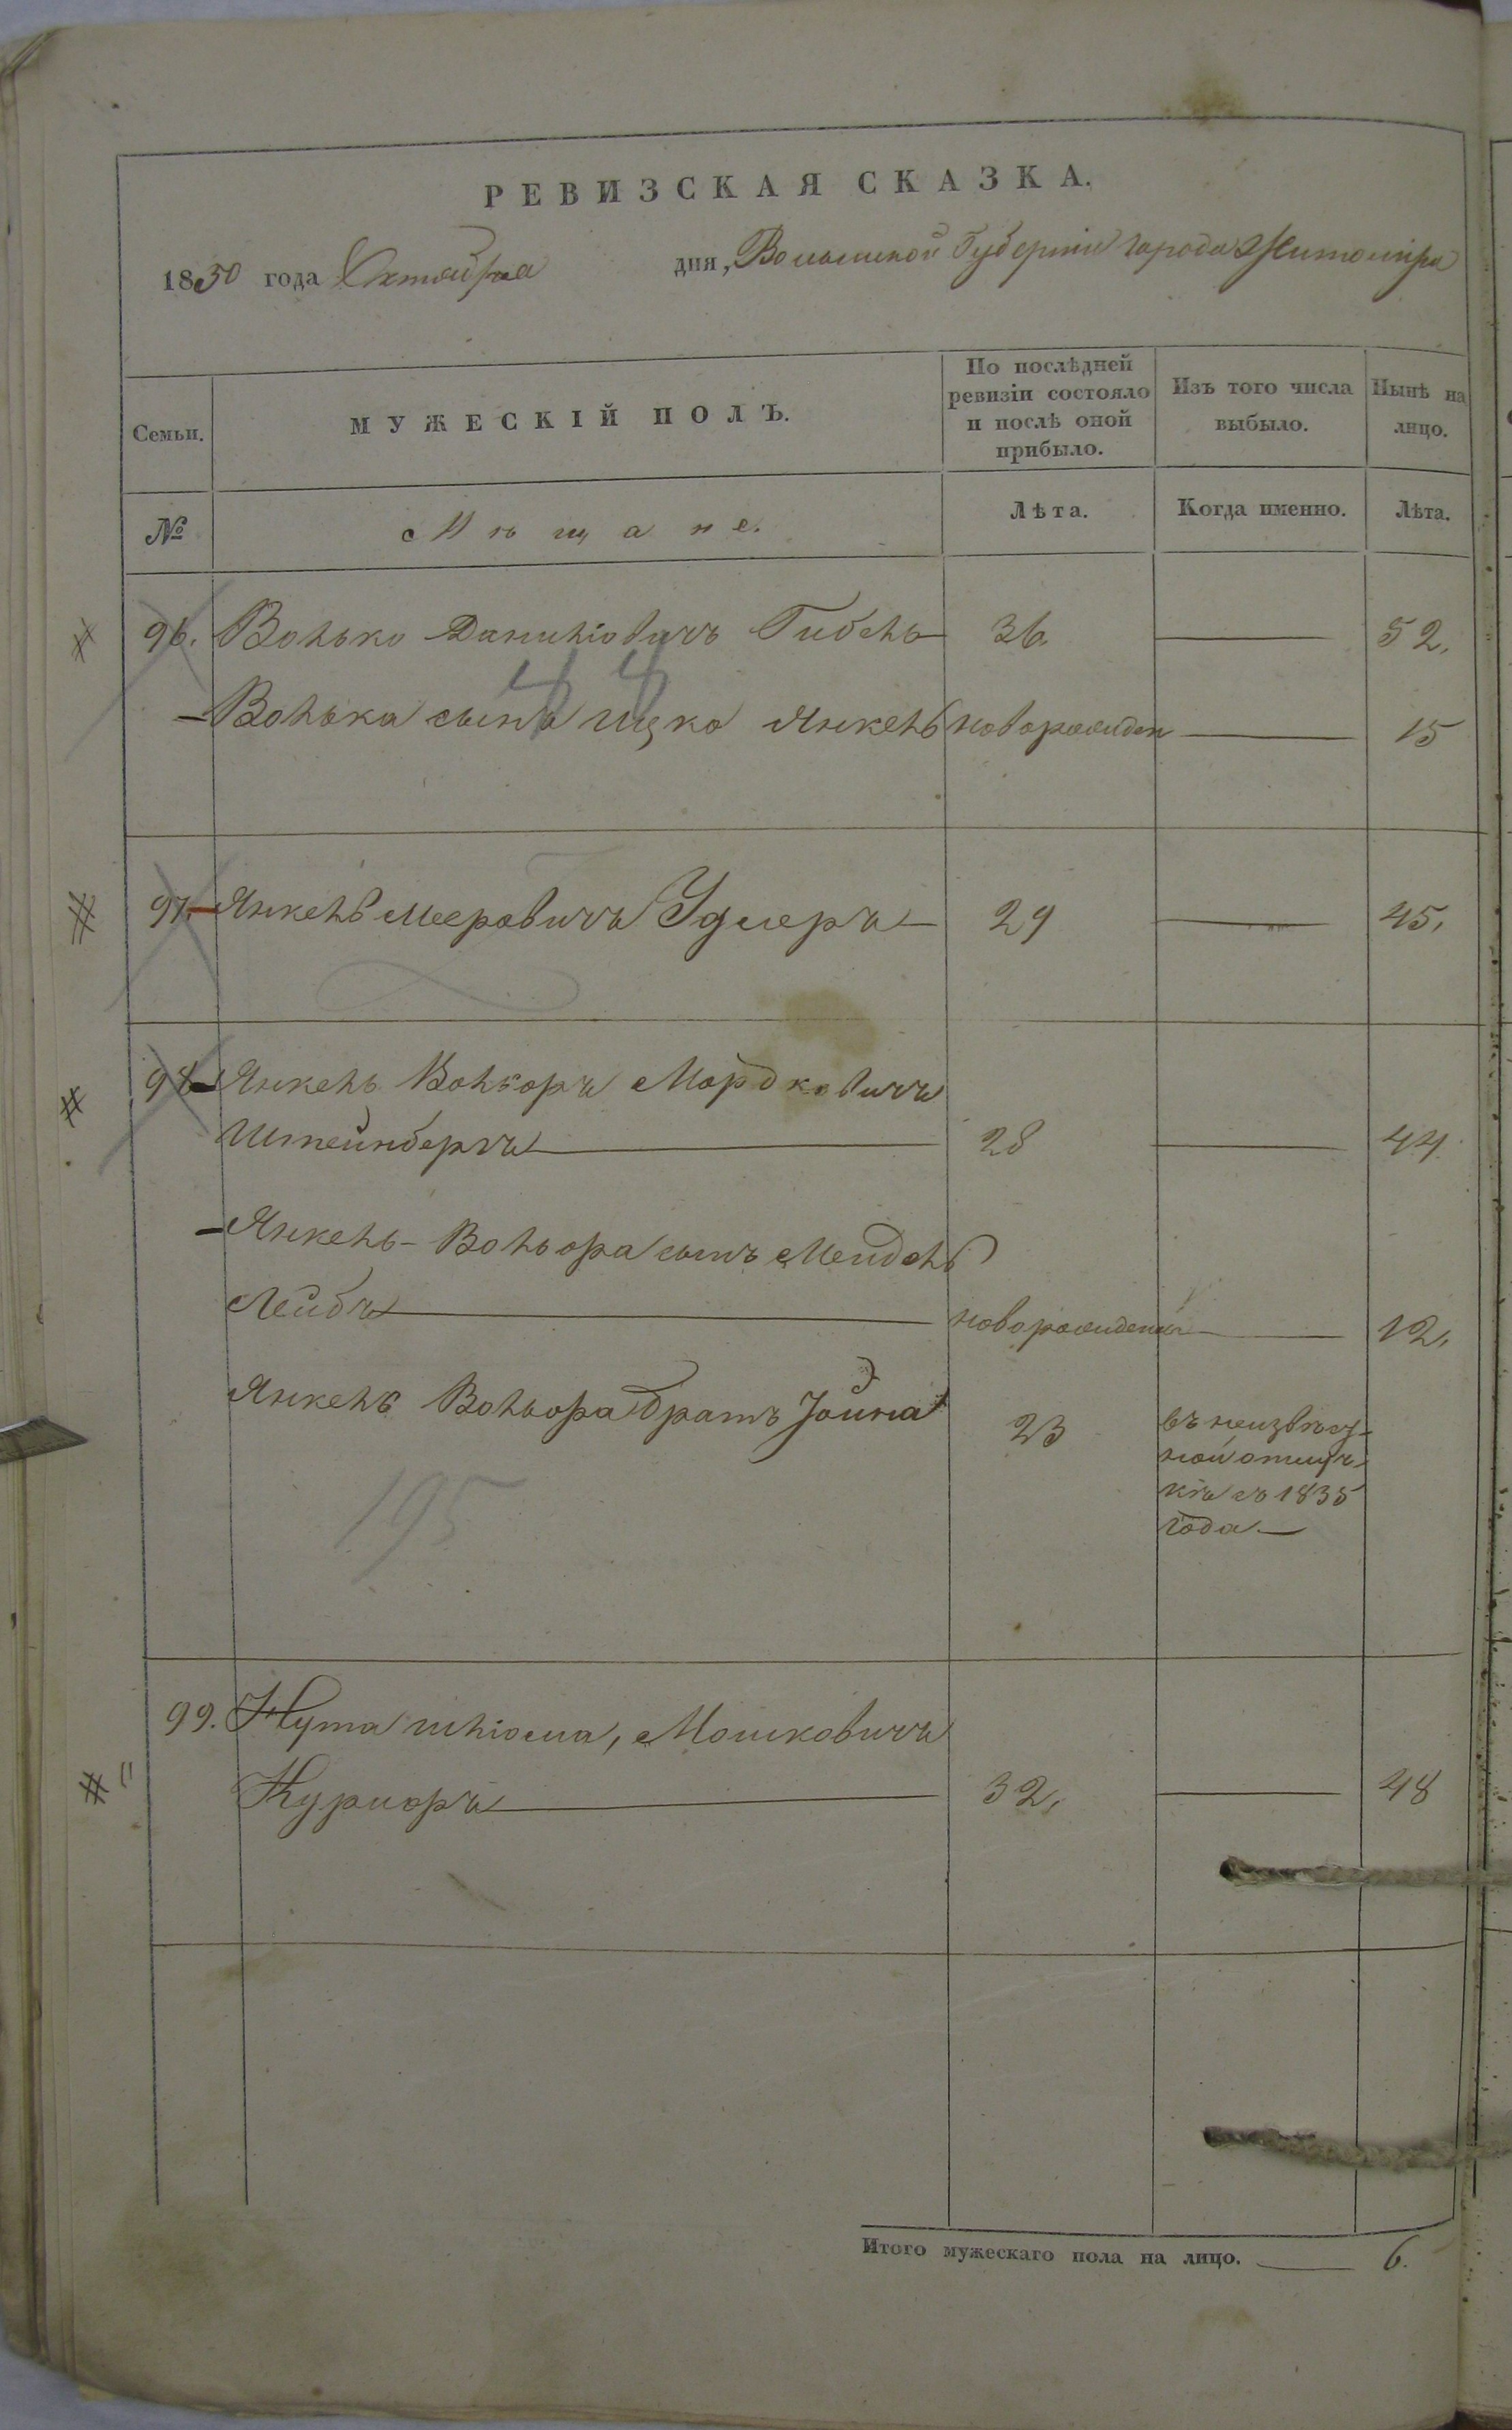 РЕВИЗСКАЯ СКАЗКА.
1850 года Октября дня, Волынской Губерніи города Житоміра
Семьи. МУЖЕСКІЙ ПОЛЪ. По послѣдней ревизіи состояло и послѣ оной прибыло. Изъ того числа выбыло. Нынѣ на лицо.
№ Мѣщане. Лѣта. Когда именно. Лѣта.
96. Волько Даниліовичъ Гибель 36. 52.
44
Волька сынъ Ицко Янкель новорожден 15
97. Янкель Мееровичъ Удлеръ 29 45.
98 Янкель Волѣоръ Мордковичъ
Штейнберъ 28 44
Янкель-Вольора сынъ Мендель
Лейбъ новорожденъ 12.
Янкель Вольора братъ Іойна 23 въ неизвѣст-
ной отлуч-
кѣ съ 1835
года
195
99. Нута Шліома, Мошковичъ
32. 48
Итого мужескаго пола на лицо. 6.